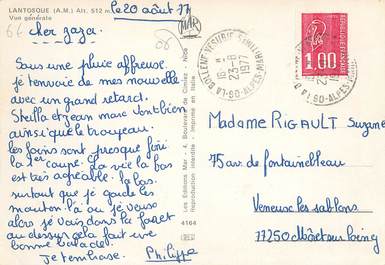 LANTOSQUE (A.M.) Alt. 512 m
Vue générale
le 20 août 77
cher zaza.
Sous une pluie affreuse.
je t'envoie de mes nouvelle
avec un grand retard.
Stella et jean marc vont bien
ainsi que le troupeau.
les foins sont presque fini
la 1ère coupe. La vie là bas
est très agréable. là bas.
surtout que je garde les
mouton là où je veux
alors je vais dans la foret
au dessus cela fait une
bonne balade.
Je t'embrasse. Philippe
Les Editions Mar - 4, Boulevard de Cimiez - Nice
Reproduction interdite - Imprimé en Italie
4164
MAR
LA BOLLENE VESUBIE
16 H
23-8
1977
06 ALPES-MAR
REPUBLIQUE FRANCAISE
1,00
POSTES
Madame RIGAULT Suzanne
75 ave de fontainebleau
Veneux les sablons
77250 Moret sur loing